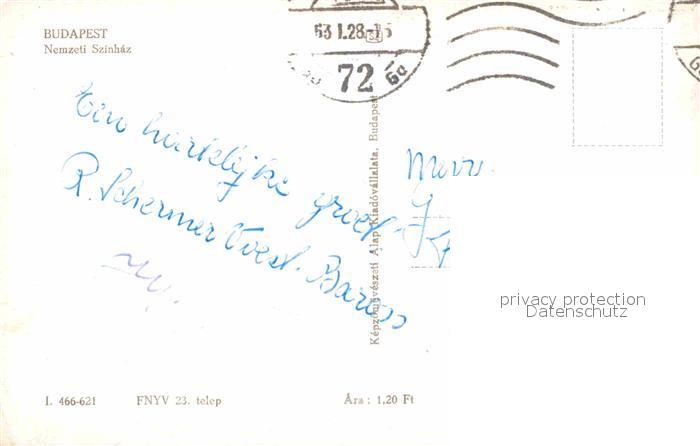 BUDAPEST
Nemzeti Színház
63 I.28-15
72
Een hartelijke groet.
R. Schermer Voest. Baross
Képzőművészeti Alap Kiadóvállalata, Budapest
Mevr.
privacy protection
Datenschutz
I. 466-621 FNYV 23. telep Ára: 1,20 Ft